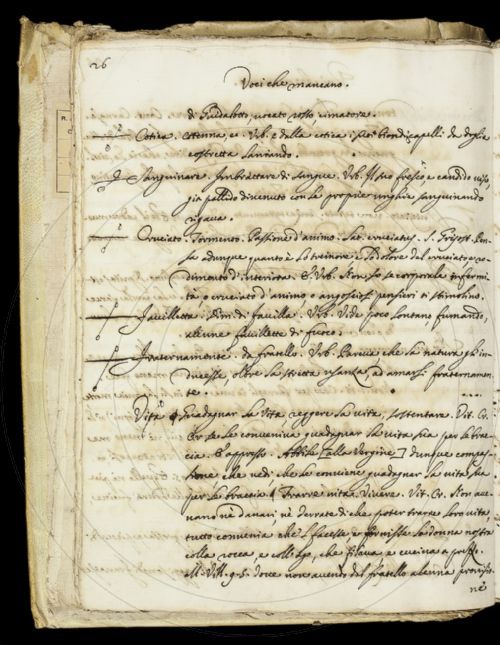 26
Voci che mancano.
di Ridolotto, vocato rosso rimatore.
Cotica. Cotenna, ec. Urb. e dalla cotica i suoi biondi capelli da doglia
costretta laniando.
Sanguinare. Imbrattare di Sangue. Urb. Il suo fresco, e candido viso
già pallido divenuto con le proprie unghie sanguinando
rigava.
Cruciato. Tormento. Passione d'animo. Sat. cruciatus. S. Gregor.
sa adunque quanto è lo tremore e lo dolore del cruciato e
dimento d'interiora. E Urb. Non so se corporale infermi-
tà o cruciato d'animo o angosciosi pensieri ti stimolino.
Favilletta. Dim. di favilla. Urb. Vide poco lontano, fumando,
alcune favillette di fuoco.
Fraternamente. da fratello. Urb. Pareva che la natura gl'in
ducesse, oltre la stretta usanza, ad amarsi fraternamen-
te.
Vita Guadagnar la Vita reggere la vita, sostentare. Vit. Cr.
Or se le conveniva guadagnar la vita sua per le brac-
cia. E appresso. Abbile [alla Vergine] dunque compas-
sione che vedi, che le conviene guadagnar la vita sua
per le braccia. Trarre vita. Vivere. Vit. Cr. Non ave-
vano nè danari, nè derrate di che poter trarne loro vita,
tutto convenia che facesse e fornisse la donna nostra
colla rocca, e coll'ago, che filava e cuciva a
M. Vill. 9. 5. dove non avendo del fratello alcuna
nè